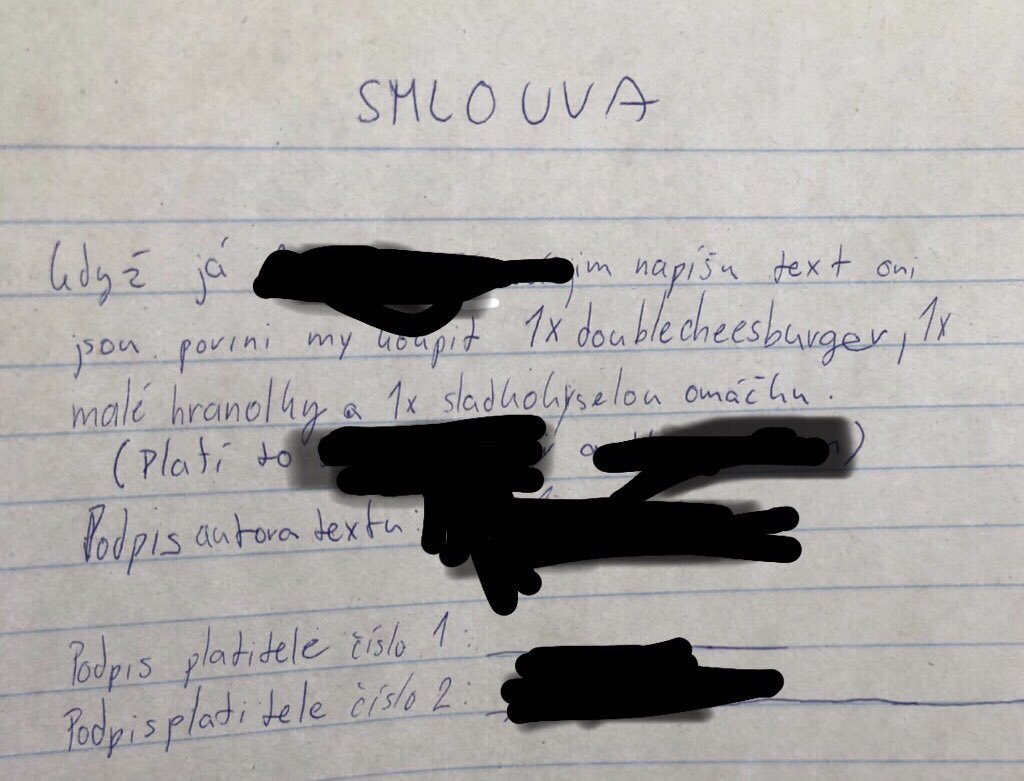 SMLOUVA
Když já jim napíšu text oni
jsou povini my koupit 1x doublecheesburger, 1x
malé hranolky a 1x sladkokyselou omáčku.
(Platí to )
Podpis autora textu:
Podpis platitele číslo 1:
Podpis platitele číslo 2: